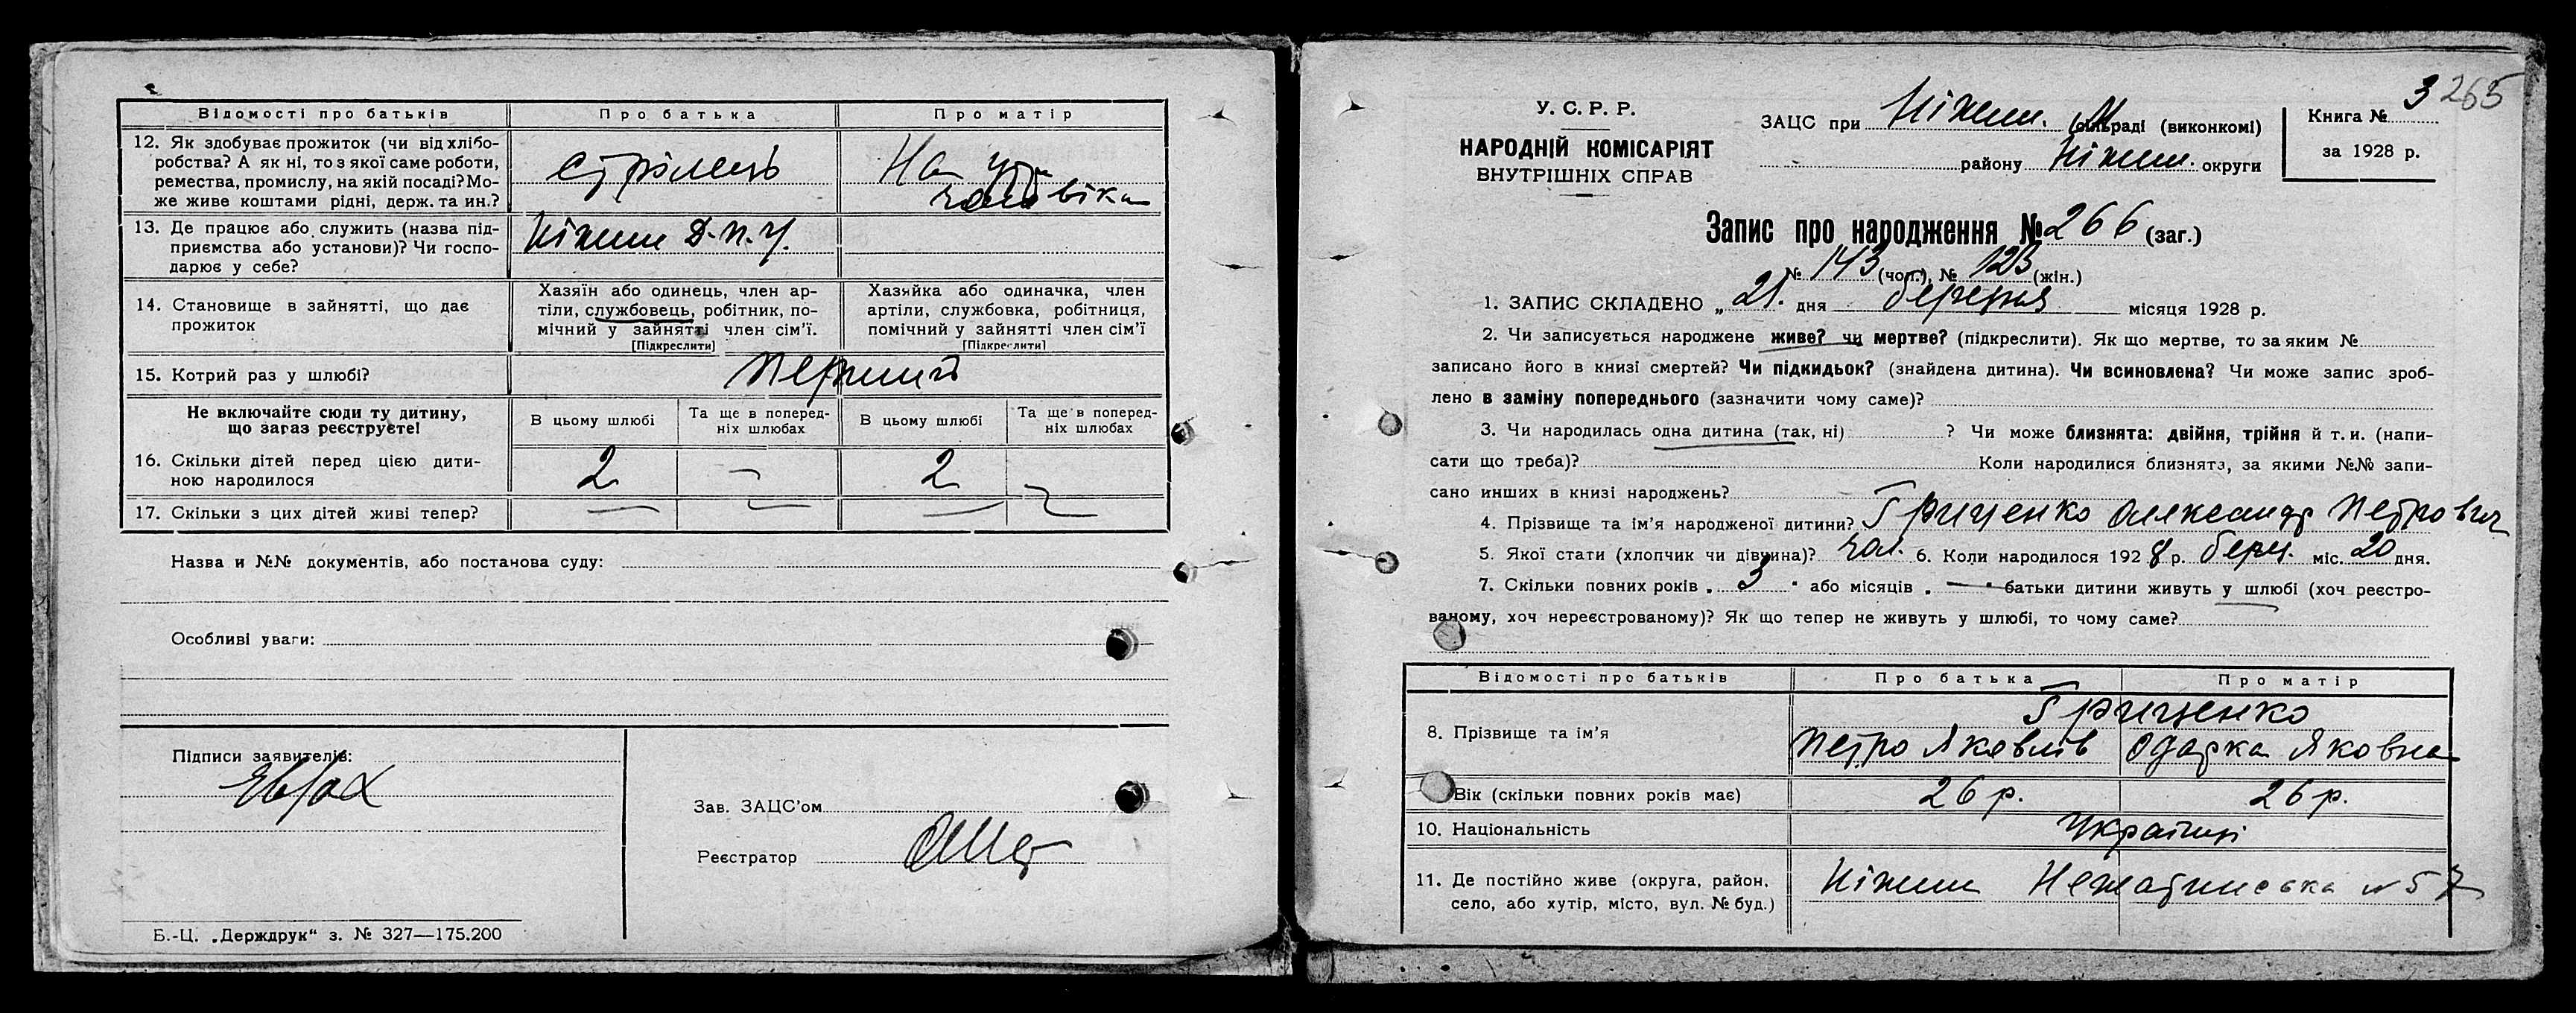 Відомості про батьків Про батька Про матір
12. Як здобуває прожиток (чи від хлібо-
робства? А як ні, то з якої саме роботи,
ремества, промислу, на якій посаді? Мо-
же живе коштами рідні, держ. та ин.?
стрілець
На утр
чоловіка
13. Де працює або служить (назва під-
приємства або установи)? Чи госпо-
дарює у себе?
Ніжин Д.П.У.
14. Становище в зайнятті, що дає
прожиток
Хазяїн або одинець, член ар-
тіли, службовець, робітник, по-
мічний у зайнятті член сім'ї.
[Підкреслити]
Хазяйка або одиначка, член
артіли, службовка, робітниця,
помічний у зайнятті член сім'ї
[Підкреслити]
15. Котрий раз у шлюбі? перший
Не включайте сюди ту дитину,
що зараз реєструєте!
В цьому шлюбі
Та ще в поперед-
ніх шлюбах
В цьому шлюбі
Та ще в поперед-
ніх шлюбах
16. Скільки дітей перед цією дити-
ною народилося
2 — 2 —
17. Скільки з цих дітей живі тепер? — — — —
Назва и №№ документів, або постанова суду:
Особливі уваги:
Підписи заявителів:
Зав. ЗАЦС'ом
Реєстратор
Б.-Ц. „Держдрук“ з. № 327—175.200
У. С. Р. Р.
НАРОДНІЙ КОМІСАРІЯТ
ВНУТРІШНІХ СПРАВ
ЗАЦС при Ніжин. М сільраді (виконкомі)
району Ніжин. округи
Книга № 3
за 1928 р.
265
Запис про народження № 266 (заг.)
№ 143 (чол.), № 123 (жін.)
1. ЗАПИС СКЛАДЕНО „ 21. дня березня місяця 1928 р.
2. Чи записується народжене живе? чи мертве? (підкреслити). Як що мертве, то за яким №
записано його в книзі смертей? Чи підкидьок? (знайдена дитина). Чи всиновлена? Чи може запис зроб-
лено в заміну попереднього (зазначити чому саме)?
3. Чи народилась одна дитина (так, ні) ? Чи може близнята: двійня, трійня й т. и. (напи-
сати що треба)? Коли народилися близнята, за якими №№ запи-
сано инших в книзі народжень?
4. Прізвище та ім'я народженої дитини? Грищенко Олександр Петрович
5. Якої стати (хлопчик чи дівчина)? чол. 6. Коли народилося 1928 р. берез. міс. 20 дня.
7. Скільки повних років „ 3 " або місяців „ — " батьки дитини живуть у шлюбі (хоч реєстро-
ваному, хоч нереєстрованому)? Як що тепер не живуть у шлюбі, то чому саме?
Відомості про батьків Про батька Про матір
8. Прізвище та ім'я
Грищенко
Петро Яковлів Одарка Яковна
Вік (скільки повних років має) 26 р. 26 р.
10. Національність Українці
11. Де постійно живе (округа, район,
село, або хутір, місто, вул. № буд.)
Ніжин №57